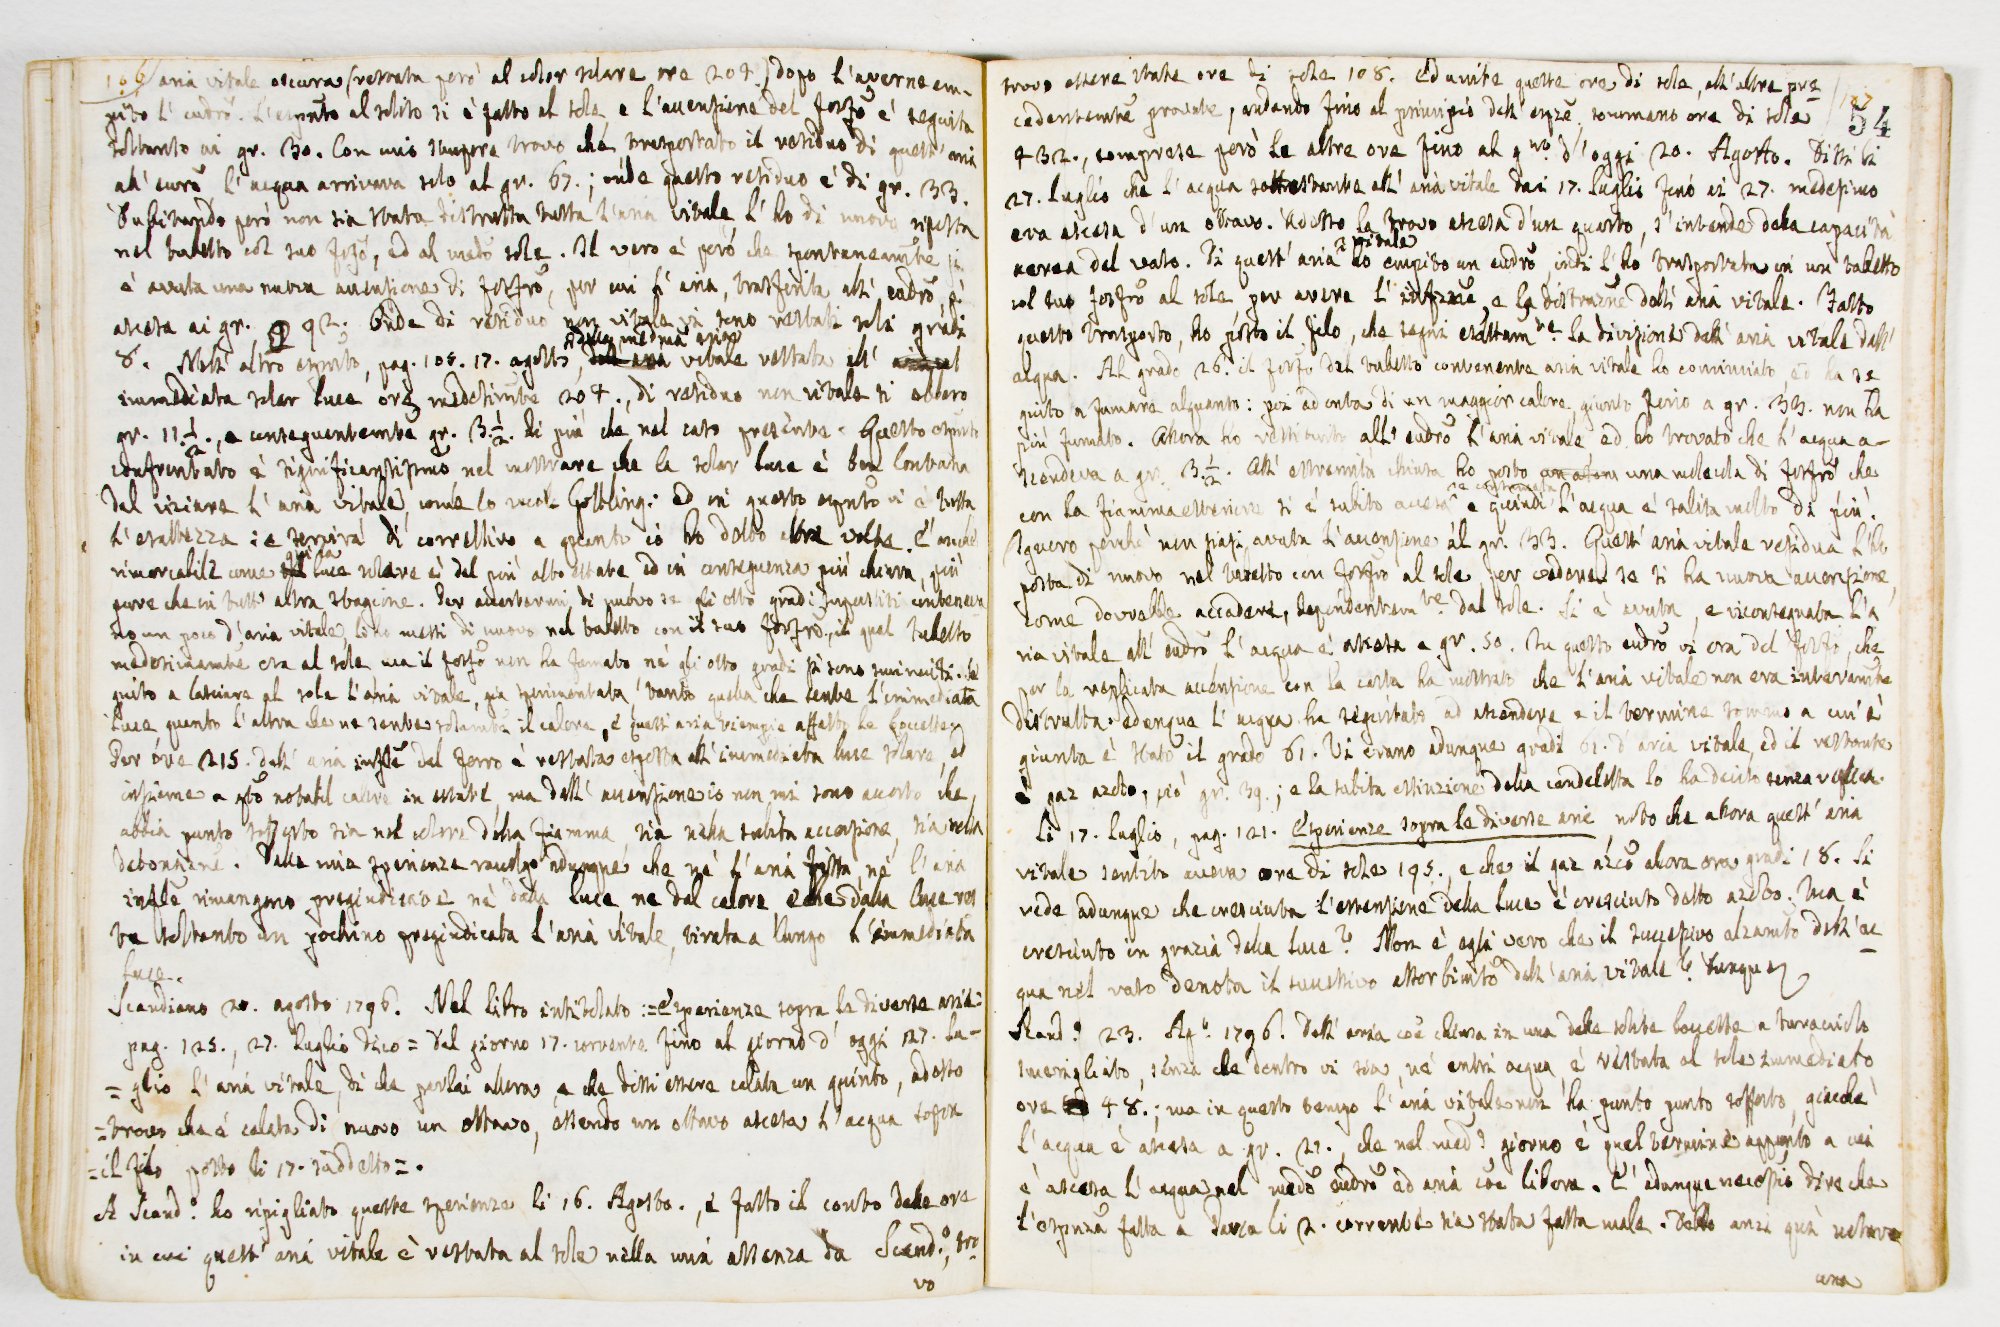 106 aria vitale oscura (restata però al color solare ore 204.) dopo l'averne em-
pito l'eudrõ. L'espmto al solito si è fatto al sole e l'accensione del fosfõ è seguita
soltanto ai gr. 30. Con mio stupore trovo che trasportato il residuo di quest'aria
all'eudrõ l'acqua arrivava solo al gr. 67.; onde questo residuo è di gr. 33.
Dubitando però non sia stata distrutta tutta l'aria vitale l'ho di nuovo riposta
nel tubetto col suo fosfõ, ed al medõ sole. Il vero è però che spontaneamte si
è avuta una nuova accensione di fosfrõ, per cui l'aria, trasferita all'eudrõ, è
ascesa ai gr. 92. Onde di residuo non vitale vi sono restati soli gradi
8. Nell'altro espmto, pag. 105. 17. agosto, della medma aria vitale restata all'
immediata solar luce ore medesimte 204., di residuo non vitale si ebbero
gr. 11 1/2., e conseguentemte gr. 3. 1/2. di più che nel caso presente. Questo espmto
confrontato è significantissimo nel mostrare che la solar luce è ben lontana
dal viziare l'aria vitale, come lo vuole Gottling: ed in questo espmto vi è tutta
l'esattezza: e servirà di correttivo a quanto io ho detto altre volte. È anche
rimarcabile come questa luce solare è del più alto estate, ed in conseguenza più chiara, più
pura che in tutt'altra stagione. Per accertarmi di nuovo se gli otto gradi superstiti contenevano
no un poco d'aria vitale, li ho messi di nuovo nel tubetto con il suo fosfrõ, il qual tubetto
medesimamte era al sole ma il fosfõ non ha fumato nè gli otto gradi si sono sminuiti. Se
guito a lasciare al sole l'aria vitale, già sperimentata tanto quella che sente l'immediata
luce quanto l'altra che ne sente solamte il calore, e quest'aria riempie affatto le boccette.
Per ore 215. dell'aria inflẽ del ferro è restata esposta all'immediata luce solare, ed
insieme a un notabil calore in estate, ma dell'accensione io non mi sono accorto che
abbia punto sofferto sia nel colore della fiamma, sia nella subita accensione, sia nella
detonazne. Dalle mie sperienze raccolgo adunque che nè l'aria fissa, nè l'aria
inflẽ rimangono pregiudicate nè dalla luce ne dal calore e che dalla luce res
ta soltanto un pochino pregiudicata l'aria vitale, tirata a lungo l'immediata
luce.
Scandiano 20. agosto 1796. Nel libro intitolato := Esperienze sopra le diverse arie:
pag. 125., 27. Luglio dico = Dal giorno 17. corrente fino al giorno d'oggi 27. Lu-
= glio l'aria vitale, di che parlai allora, e che dissi essere calata un quinto, adesso
= trovo che è calata di nuovo un ottavo, essendo un ottavo ascesa l'acqua sopra
= il filo posto li 17. suddetto =.
A Scand.º ho ripigliato queste sperienze li 16. Agosto., e fatto il conto delle ore
in cui quest'aria vitale è restata al sole nella mia assenza da Scand.º, tro-
vo
107
54
trovo essere state ore di sole 108. Ed unite queste ore di sole, all'altre pre
cedentemte provate, andando fino al principio dell'espzẽ, sommano ore di sole
432., comprese però le altre ore fino al gno d'oggi 20. Agosto. Dissi li
27. Luglio che l'acqua sottostante all'aria vitale dai 17. Luglio fino ai 27. medesimo
era ascesa d'un ottavo. Adesso la trovo ascesa d'un quarto, s'intende dela capacità
aerea del vaso. Di quest'aria vitale ho empito un eudrõ, indi l'ho trasportata in un tubetto
col suo fosfrõ al sole per avere l'infzzõe, e la distrazne dell'aria vitale. Fatto
questo trasporto, ho posto il filo, che segni esattamte la divisione dell'aria vitale dall'
acqua. Al grado 26. il fosfõ del tubetto contenente aria vitale ha cominciato, ed ha se
guito a fumare alquanto: poi ad onta di un maggior calore, giunto fino a gr. 33. non ha
più fumato. Allora ho restituito all'eudrõ l'aria vitale ed ho trovato che l'acqua a-
scendeva a gr. 3. 1/2. All'estremità chiusa ho posto una molecola di fosfrõ che
con la fiamma esteriore si è subito accesa e quindi l'acqua è salita molto di più.
Ignoro perchè non siasi avuta l'accensione al gr. 33. Quest'aria vitale residua l'ho
posta di nuovo nel tubetto con fosfrõ al sole per vedere se si ha nuova accensione,
come dovrebbe accadere, dependentemte dal sole. Si è avuta, e riconsegnata l'a
ria vitale all'eudrõ l'acqua è ascesa a gr. 50. In questo eudrõ vi era del fosfõ, che
per la replicata accensione con la carta ha mostrato che l'aria vitale non era interamte
distrutta. Adunque l'acqua ha seguitato ad ascendere e il termine sommo a cui è
giunta è stato il grado 61. Vi erano adunque gradi 61. d'aria vitale, ed il restante
è gaz azoto, ciò gr. 39.; e la subita estinzione della candeletta lo ha deciso senza replica.
Li 17. Luglio, pag. 121. Esperienze sopra le diverse arie noto che allora quest'aria
vitale sentita aveva ore di sole 195., e che il gaz azõo allora era gradi 18. Si
vede adunque che cresciuta l'estensione della luce è cresciuto detto azoto. Ma è
cresciuto in grazia della luce? Non è egli vero che il successivo alzamto dell'ac
qua nel vaso denota il successivo assorbimto dell'aria vitale? Dunque
Scand.º 23. Agº. 1796. Dell'aria coẽ chiusa in una dele solite boccette a turracciolo
smerigliato, senza che dentro vi sia, nè entri acqua, è restata al sole immediato
ore 48.; ma in questo tempo l'aria vitale non ha punto punto sofferto, giacchè
l'acqua è ascesa a gr. 21., che nel med.º giorno è quel termine appunto a cui
è ascesa l'acqua nel medõ eudrõ ad aria coẽ libera. È adunque necessrio dire che
l'espnza fatta a Pavia li 2. corrente sia stata fatta male. Dello anzi quà notava
una